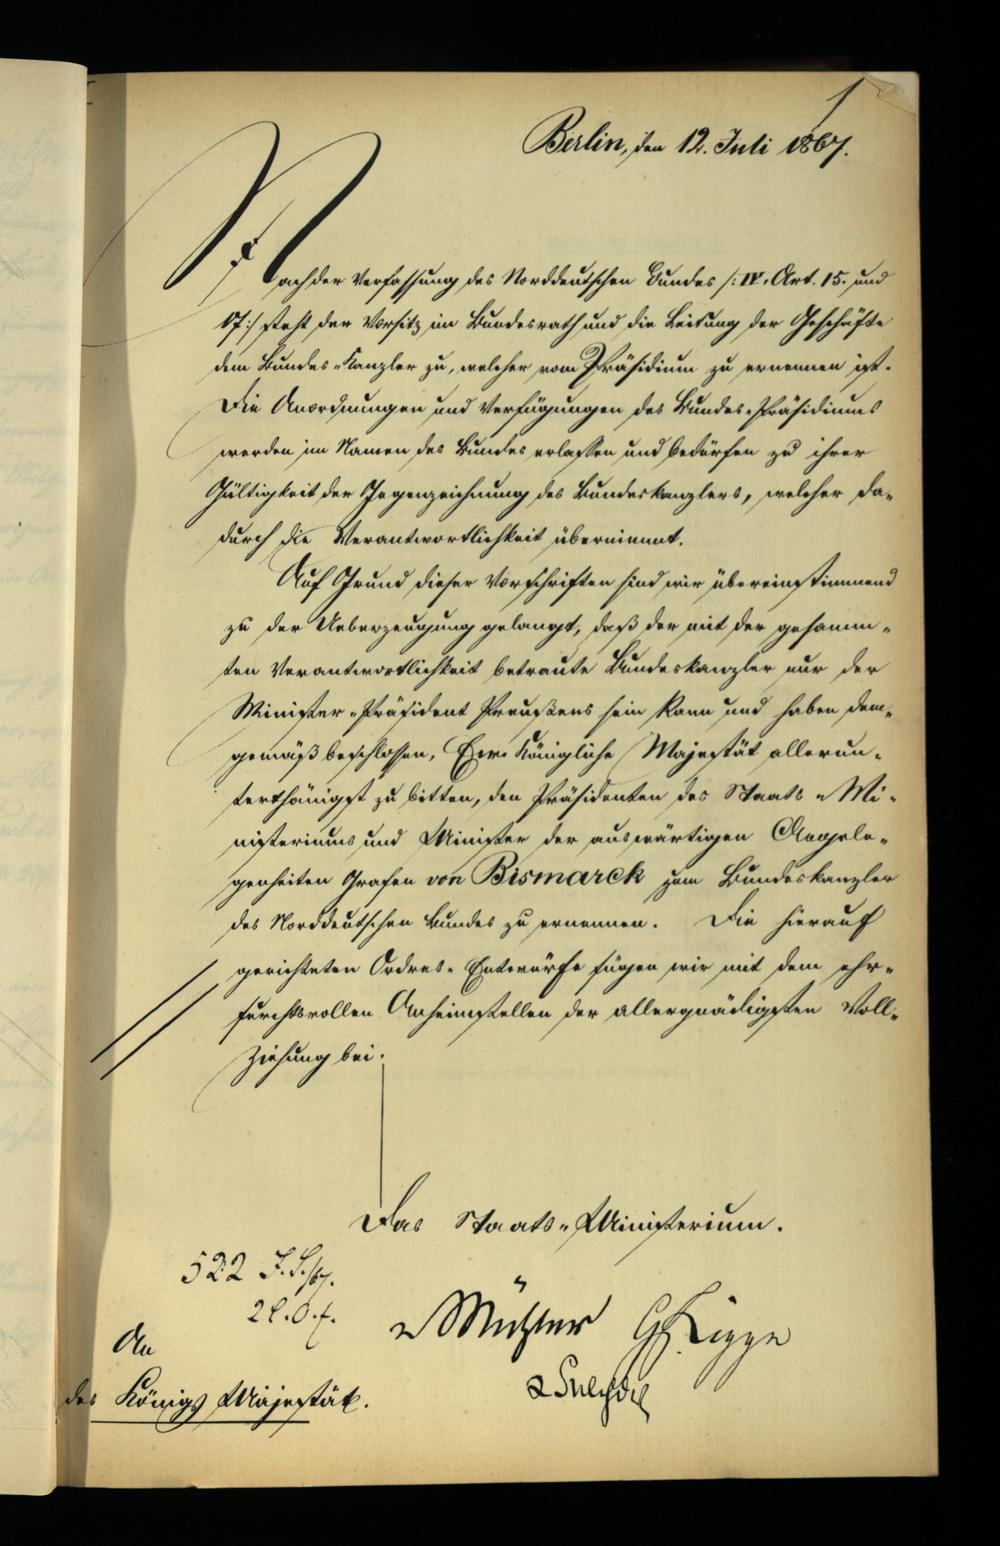 Berlin, den 12. Juli 1867.
Nach der Verfassung des Norddeutschen Bundes /: IV. Art. 15. und
17 :/ steht der Vorsitz im Bundesrath und die Leitung der Geschäfte
dem Bundes-Kanzler zu, welcher vom Präsidium zu ernennen ist.
Die Anordnungen und Verfügungen des Bundes-Präsidiums
werden im Namen des Bundes erlassen und bedürfen zu ihrer
Gültigkeit der Gegenzeichnung des Bundeskanzlers, welcher da-
durch die Verantwortlichkeit übernimmt.
Auf Grund dieser Vorschriften sind wir übereinstimmend
zu der Ueberzeugung gelangt, daß der mit der gesamm-
ten Verantwortlichkeit betraute Bundeskanzler nur der
Minister-Präsident Preußens sein kann und haben dem-
gemäß beschlossen, Eure Königliche Majestät allerun-
terthänigst zu bitten, den Präsidenten des Staats-Mi-
nisteriums und Minister der auswärtigen Angele-
genheiten Grafen von Bismarck zum Bundeskanzler
des Norddeutschen Bundes zu ernennen. Die hierauf
gerichteten Ordres-Entwürfe fügen wir mit dem ehr-
furchtsvollen Anheimstellen der allergnädigsten Voll-
ziehung bei.
Das Staats-Ministerium.
522
An
des Königs Majestät.
v Mühler